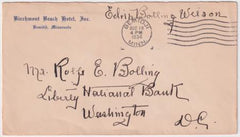 Birchmont Beach Hotel, Inc.
Bemidji, Minnesota
Edith Bolling Wilson
BEMIDJI
4 PM
1934
MINN.
Mr. Rolfe E. Bolling
Liberty National Bank
Washington
D.C.